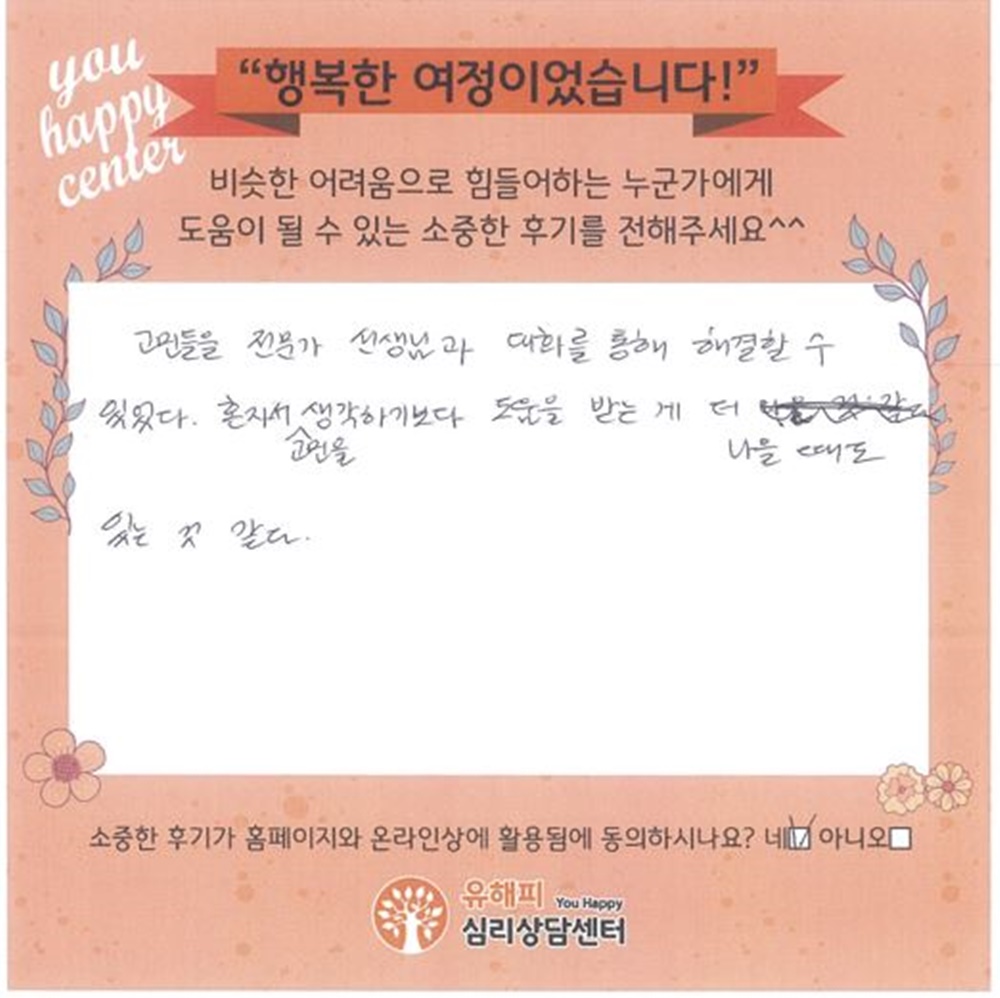 you
happy
center
“행복한 여정이었습니다!”
비슷한 어려움으로 힘들어하는 누군가에게
도움이 될 수 있는 소중한 후기를 전해주세요^^
고민들을 전문가 선생님과 대화를 통해 해결할 수
있었다. 혼자서 생각하기보다 도움을 받는 게 더
고민을 나을 때도
있는 것 같다.
소중한 후기가 홈페이지와 온라인상에 활용됨에 동의하시나요? 네 아니오
유해피 You Happy
심리상담센터